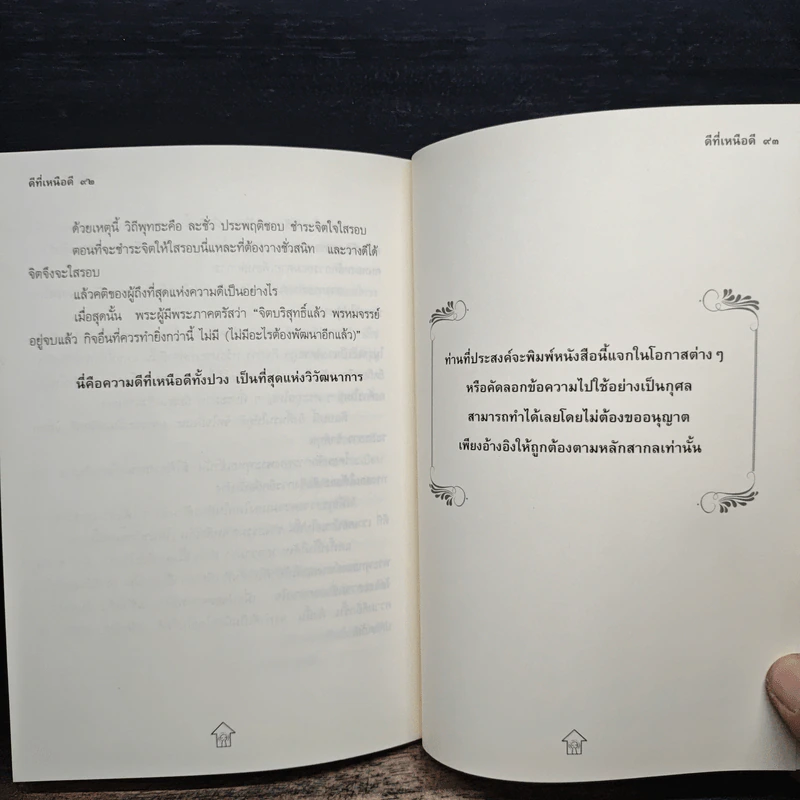 ดีที่เหนือดี ๙๒
ด้วยเหตุนี้ วิถีพุทธะคือ ละชั่ว ประพฤติชอบ ชำระจิตใจใสรอบ
ตอนที่จะชำระจิตให้ใสรอบนี่แหละที่ต้องวางชั่วสนิท และวางดีได้
จิตจึงจะใสรอบ
แล้วคติของผู้ถึงที่สุดแห่งความดีเป็นอย่างไร
เมื่อสุดนั้น พระผู้มีพระภาคตรัสว่า “จิตบริสุทธิ์แล้ว พรหมจรรย์
อยู่จบแล้ว กิจอื่นที่ควรทำยิ่งกว่านี้ ไม่มี (ไม่มีอะไรต้องพัฒนาอีกแล้ว)”
นี่คือความดีที่เหนือดีทั้งปวง เป็นที่สุดแห่งวิวัฒนาการ
ดีที่เหนือดี ๙๓
ท่านที่ประสงค์จะพิมพ์หนังสือนี้แจกในโอกาสต่าง ๆ
หรือคัดลอกข้อความไปใช้อย่างเป็นกุศล
สามารถทำได้เลยโดยไม่ต้องขออนุญาต
เพียงอ้างอิงให้ถูกต้องตามหลักสากลเท่านั้น